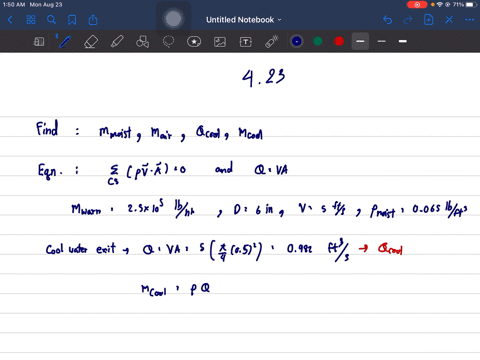 1:50 AM Mon Aug 23
71%
Untitled Notebook
4.23
Find : m moist, m air, Q cool, m cool
Eqn. : Σ CS (ρV⃗·A⃗) = 0 and Q = VA
m warm = 2.5×10⁵ lb/hr, D = 6 in, V = 5 ft/s, ρ moist = 0.065 lb/ft³
Cool water exit → Q = VA = 5 (π/4 (0.5)²) = 0.982 ft³/s → Q cool
m cool = ρ Q